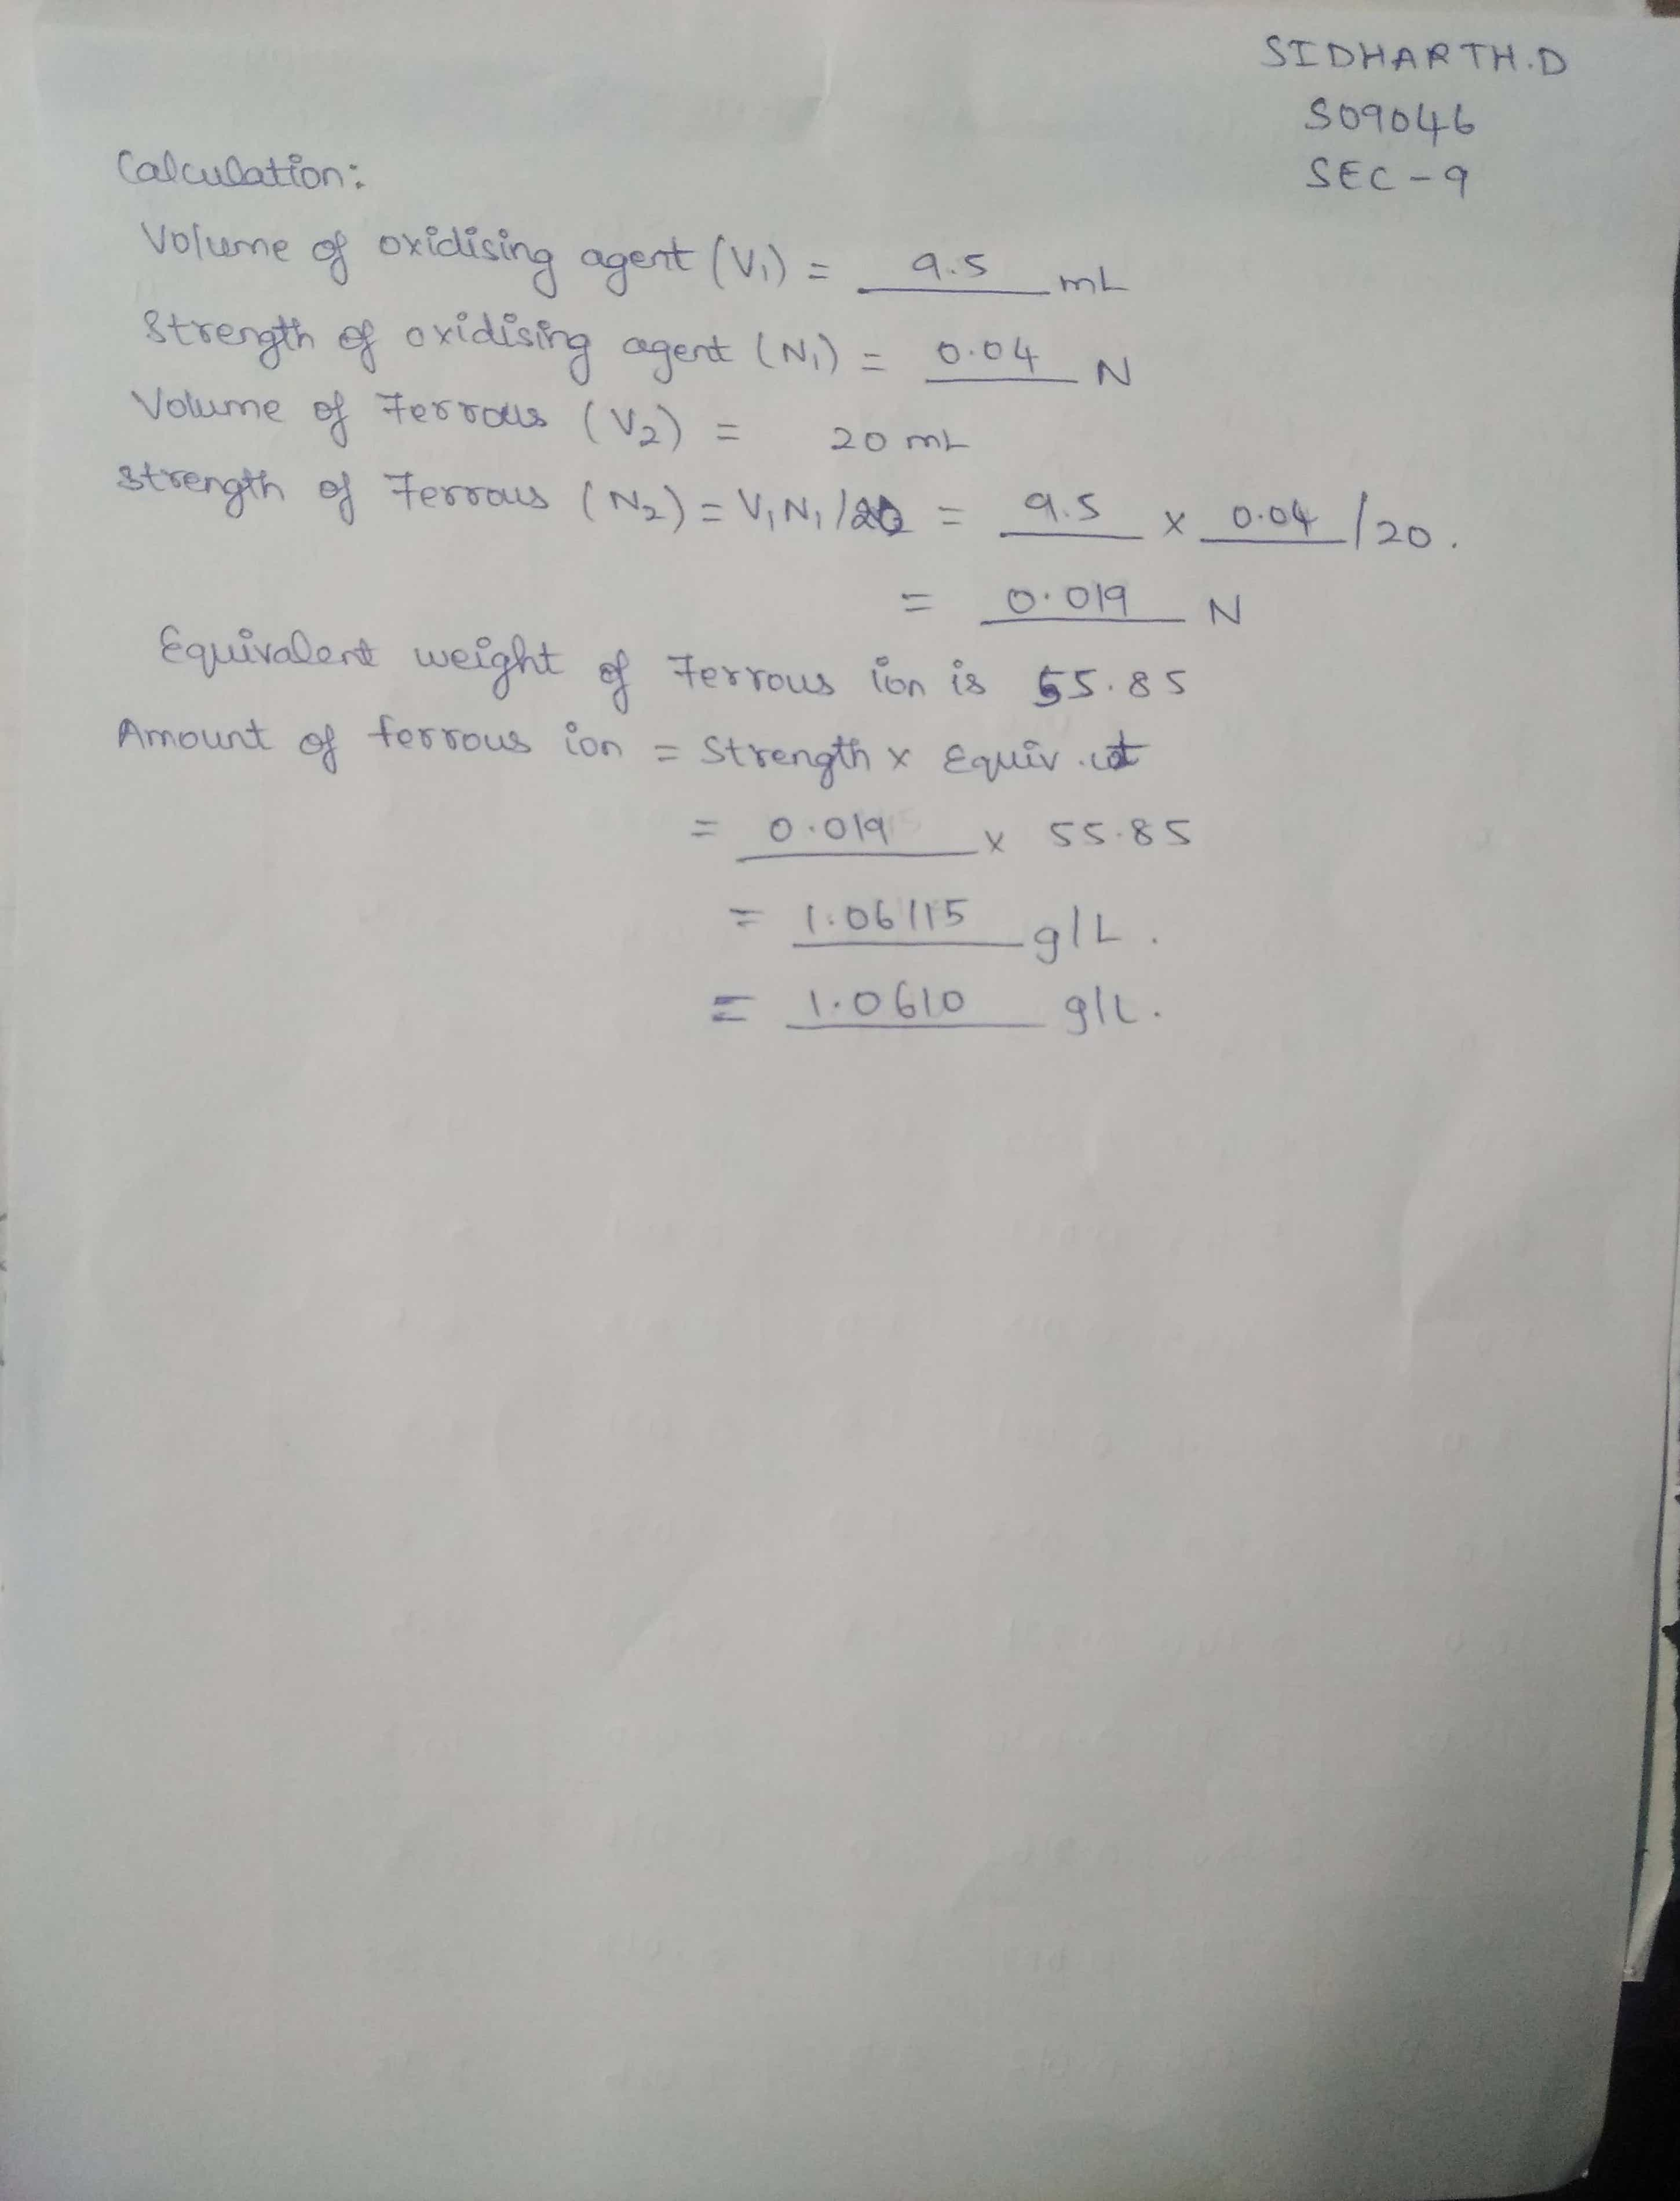 SIDHARTH.D
S09046
SEC - 9
Calculation:
Volume of oxidising agent (V₁) = 9.5 mL
Strength of oxidising agent (N₁) = 0.04 N
Volume of Ferrous (V₂) = 20 mL
Strength of Ferrous (N₂) = V₁N₁/20 = 9.5 x 0.04 /20.
= 0.019 N
Equivalent weight of Ferrous ion is 55.85
Amount of ferrous ion = Strength x Equiv.wt
= 0.019 x 55.85
= 1.06115 g/L.
= 1.0610 g/L.